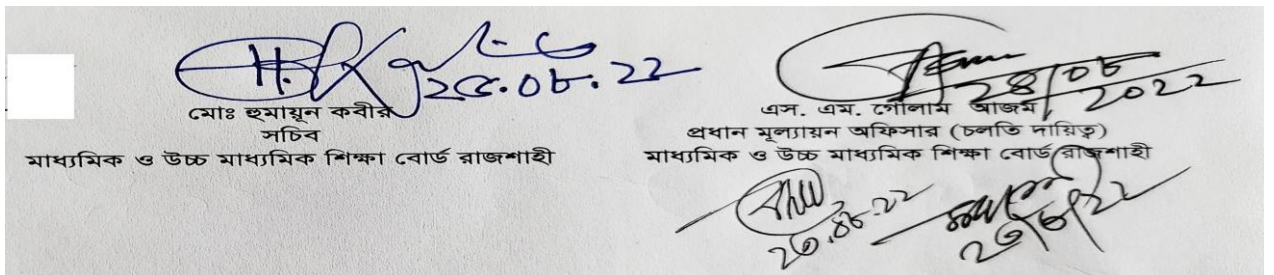 ২৫.০৮.২২
মোঃ হুমায়ূন কবীর
সচিব
মাধ্যমিক ও উচ্চ মাধ্যমিক শিক্ষা বোর্ড রাজশাহী
২৪/০৮/২০২২
এস. এম. গোলাম আজম
প্রধান মূল্যায়ন অফিসার (চলতি দায়িত্ব)
মাধ্যমিক ও উচ্চ মাধ্যমিক শিক্ষা বোর্ড রাজশাহী
২৩.০৮.২২
২৩/৮/২২